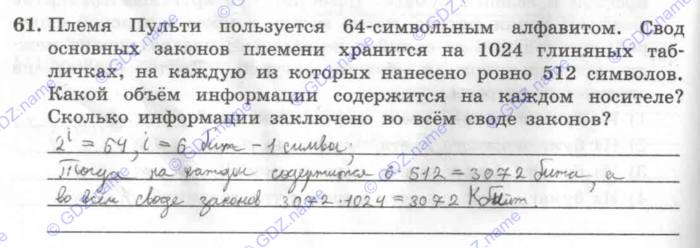 61. Племя Пульти пользуется 64-символьным алфавитом. Свод
основных законов племени хранится на 1024 глиняных таб-
личках, на каждую из которых нанесено ровно 512 символов.
Какой объём информации содержится на каждом носителе?
Сколько информации заключено во всём своде законов?
2^i = 64, i = 6 бит – 1 символ,
Тогда на каждом содержится 6 512 = 3072 бита, а
во всём своде законов 3072 · 1024 = 3072 Кбит.
© GDZ.name